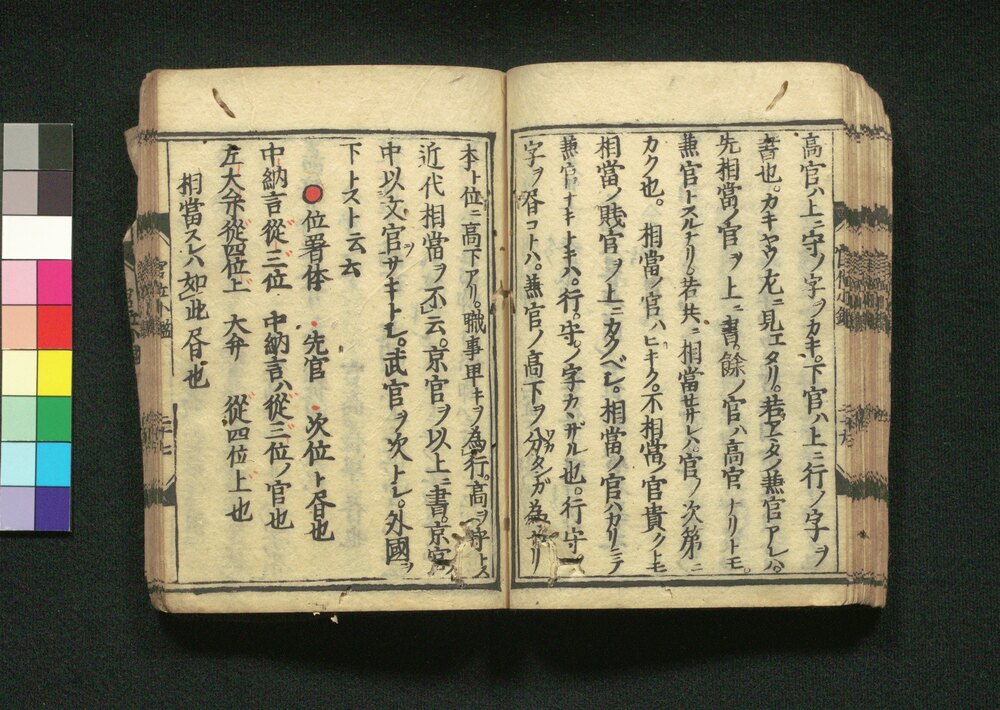 高官ハ上ニ守ノ字ヲカキ。下官ハ上ニ行ノ字ヲ
書也。カキヤウ左ニ見エタリ。若アマタノ兼官アレハ。
先相當ノ官ヲ上ニ書餘ノ官ハ高官ナリトモ。
兼官トスルナリ。若共ニ相當セサレハ。官ノ次第ニ
カク也。相當ノ官ハヒキク。不相當ノ官貴クトモ
相當ノ賎官ヲ上ニカクベシ。相當ノ官ハカリニテ
兼官ナキトキハ。行。守。ノ字カヽサル也。行守
字ヲ㫺コトハ。兼官ノ高下ヲ分タンガ為ナリ
ワカ
本ト位ニ高下アリ。職事卑キヲ為行。高ヲ守トス
近代相當ヲ不云。京官ヲ以上ニ書。京官
中以文官サキトシ。武官ヲ次トシ。外國ヲ
下トスト云云
位署体 先官 次位ト㫺也
中納言從三位 中納言ハ從三位ノ官也
左大弁從四位上 大弁 從四位上也
相當スレハ如此㫺也